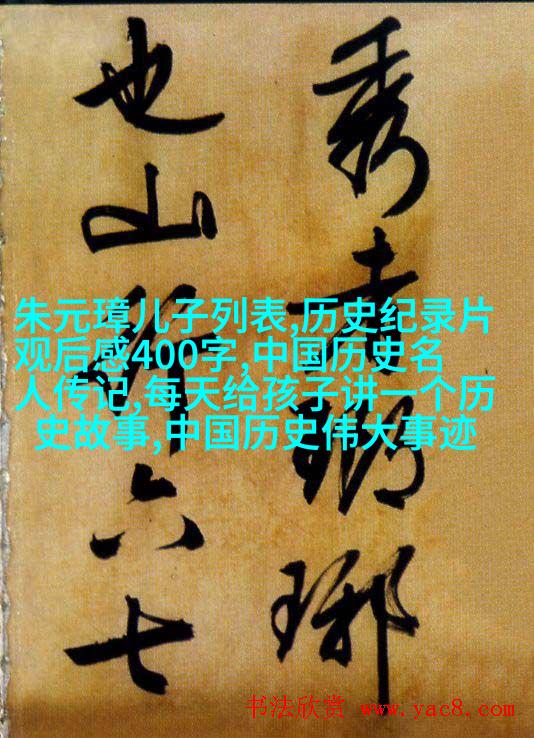 秀者瑯琊
也山行六七
朱元璋儿子列表,历史纪录片
观后感400字,中国历史名
人传记,每天给孩子讲一个历
史故事,中国历史伟大事迹
书法欣赏 www.yac8.com